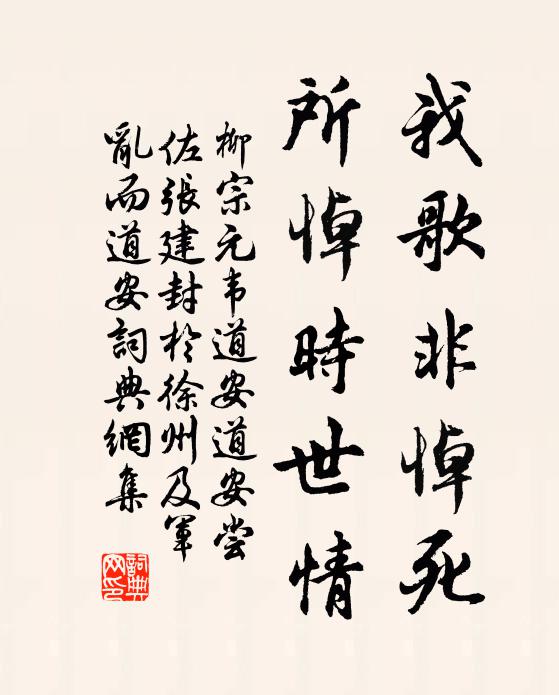 我歌非悼死
所悼時世情
柳宗元韦道安道安尝
佐張建封於徐州及軍
亂而道安詞典網集
詞典网印